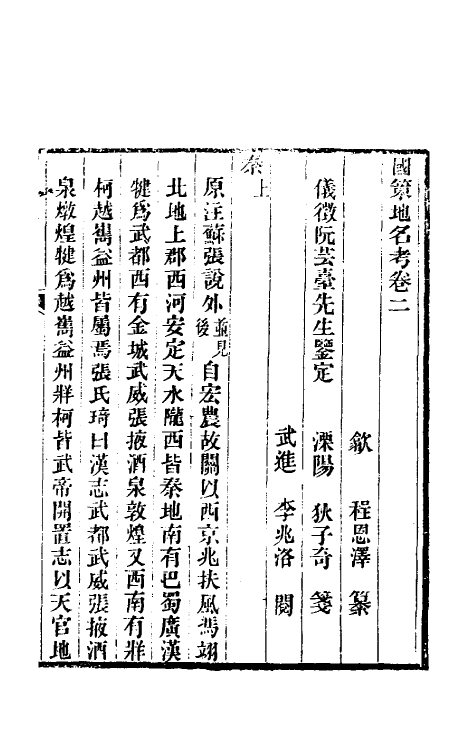 國策地名考卷二
歙　程恩澤　纂
儀徵阮芸臺先生鑒定　溧陽　狄子奇　箋
武進　李兆洛　閱
秦上
原注蘇張說外並見後自宏農故關以西京兆扶風馮翊
北地上郡西河安定天水隴西皆秦地南有巴蜀廣漢
犍爲武都西有金城武威張掖酒泉敦煌又西南有牂
柯越嶲益州皆屬焉張氏琦曰漢志武都武威張掖酒
泉燉煌犍爲越嶲益州牂柯皆武帝開置志以天官地